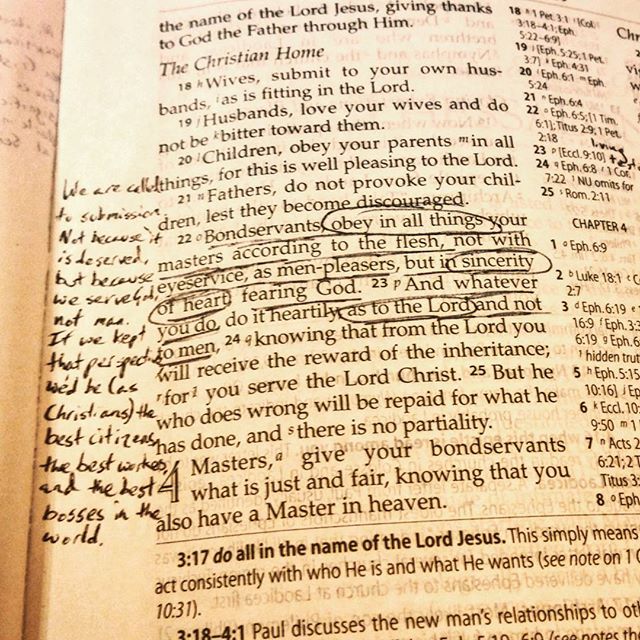 the name of the Lord Jesus, giving thanks
to God the Father through Him.
The Christian Home
18 h Wives, submit to your own hus-
bands, i as is fitting in the Lord.
19 j Husbands, love your wives and do
not be k bitter toward them.
20 l Children, obey your parents m in all
things, for this is well pleasing to the Lord.
21 n Fathers, do not provoke your chil-
dren, lest they become discouraged.
22 o Bondservants, obey in all things your
masters according to the flesh, not with
eyeservice, as men-pleasers, but in sincerity
of heart, fearing God. 23 p And whatever
you do, do it heartily, as to the Lord and not
to men, 24 q knowing that from the Lord you
will receive the reward of the inheritance;
r for 1 you serve the Lord Christ. 25 But he
who does wrong will be repaid for what he
has done, and s there is no partiality.
4 Masters, a give your bondservants
what is just and fair, knowing that you
also have a Master in heaven.
We are called
to submission.
Not because it
is deserved,
but because
we serve God,
not man.
If we kept
that perspective
we'd be (as
Christians) the
best citizens,
the best workers,
and the best
bosses in the
world.
18 h 1 Pet. 3:1 i [Col.
3:18-4:1; Eph.
5:22-6:9]
19 j [Eph. 5:25; 1 Pet.
3:7] k Eph. 4:31
20 l Eph. 6:1 m Eph.
5:24
21 n Eph. 6:4
22 o Eph. 6:5; [1 Tim.
6:1]; Titus 2:9; 1 Pet.
2:18
23 p [Eccl. 9:10]
24 q Eph. 6:8 r 1 Cor.
7:22 1 NU omits for
25 s Rom. 2:11
CHAPTER 4
1 a Eph. 6:9
2 b Luke 18:1
2:7
3 d Eph. 6:19
16:9 f [Eph. 3:
6:19 g Eph. 6
1 hidden trut
5 h Eph. 5:15
10:16] j Ep
6 k Eccl. 10:
9:50 m 1
7 n Acts 2
6:21; 2 T
Titus 3:
8 o Eph
Chr
3:17 do all in the name of the Lord Jesus. This simply means
act consistently with who He is and what He wants (see note on 1 C
10:31).
3:18–4:1 Paul discusses the new man's relationships to oth